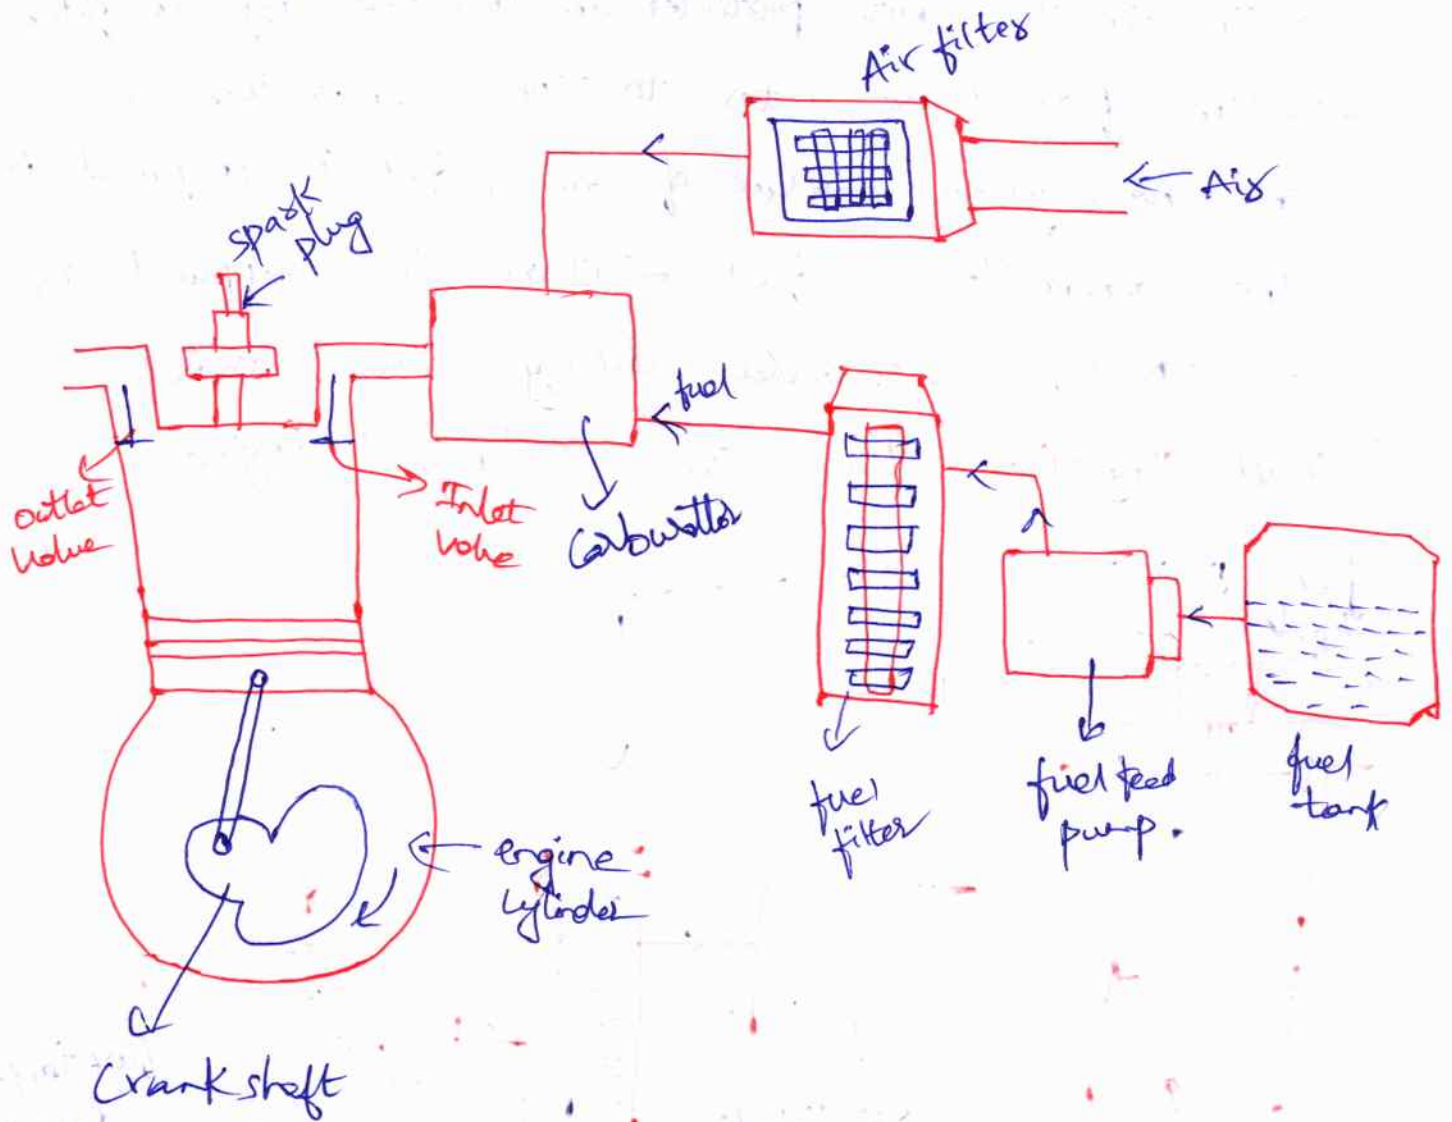 Air filter
Air
spark
plug
fuel
outlet
valve
Inlet
valve
Carburettor
fuel
filter
fuel feed
pump.
fuel
tank
engine
cylinder
Crankshaft